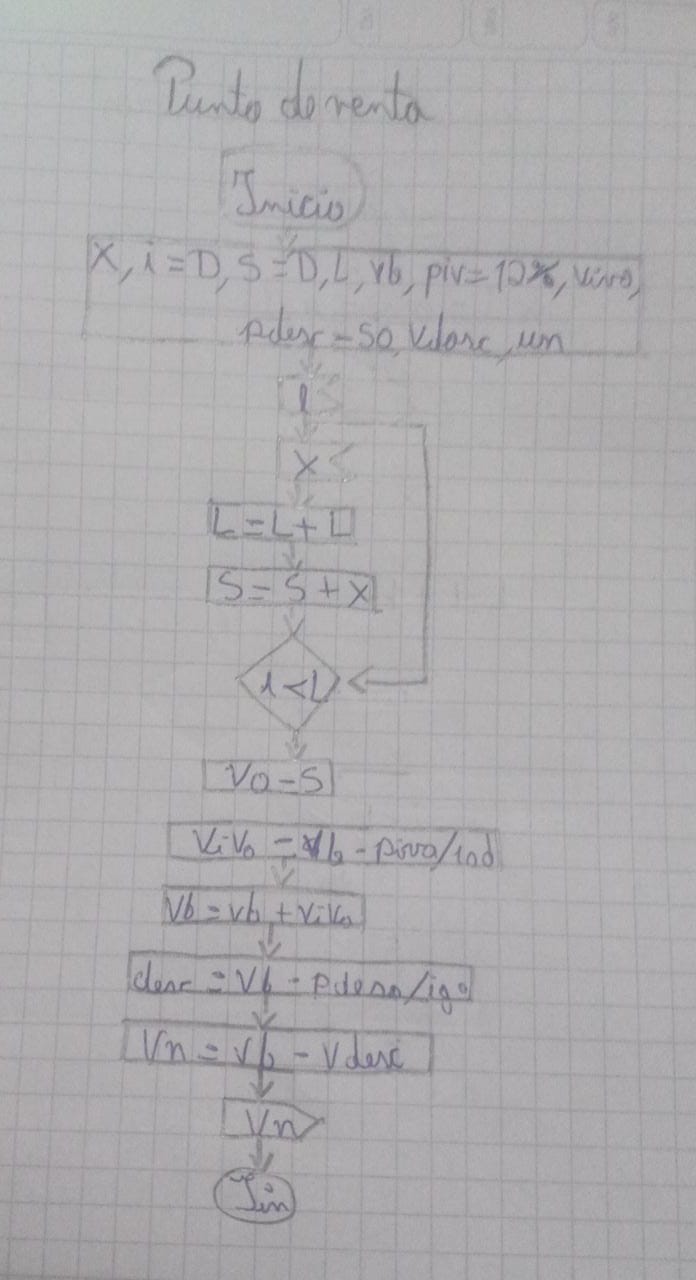 Punto de venta
Inicio
X, i=D, S=D, L, vb, piv=12%, vivo,
pdesc=50, Vdesc, um
X
L=L+D
S=S+X
i<L
Vo=S
Vivo = vb - pivo/100
Vb=vb+vivo
desc = Vb - pdeno/igo
Vn = vb - vdesc
Vn
Fin